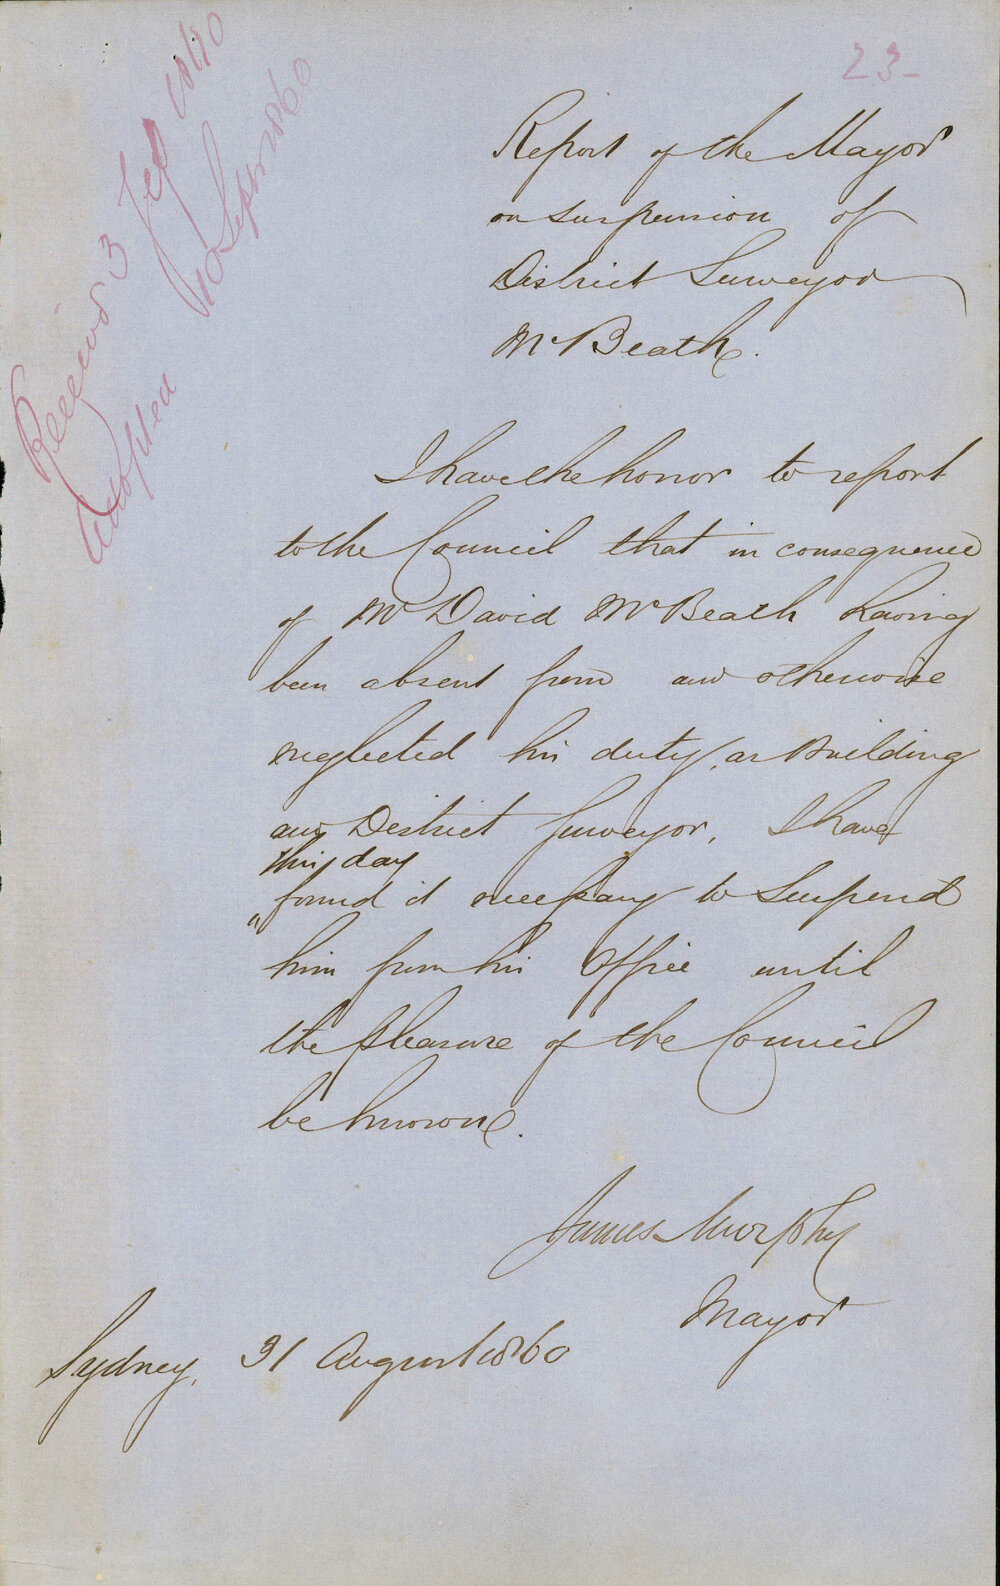 23-
Received 3 Sep 1860
Adopted 10 Septr 1860
Report of the Mayor
on suspension of
District Surveyor
McBeath.
I have the honor to report
to the Council that in consequence
of Mr David McBeath having
been absent from and otherwise
neglected his duty, as Building
and District Surveyor, I have
this day
found it necessary to suspend
him from his Office until
the pleasure of the Council
be known.
James Murphy
Mayor
Sydney, 31 August 1860